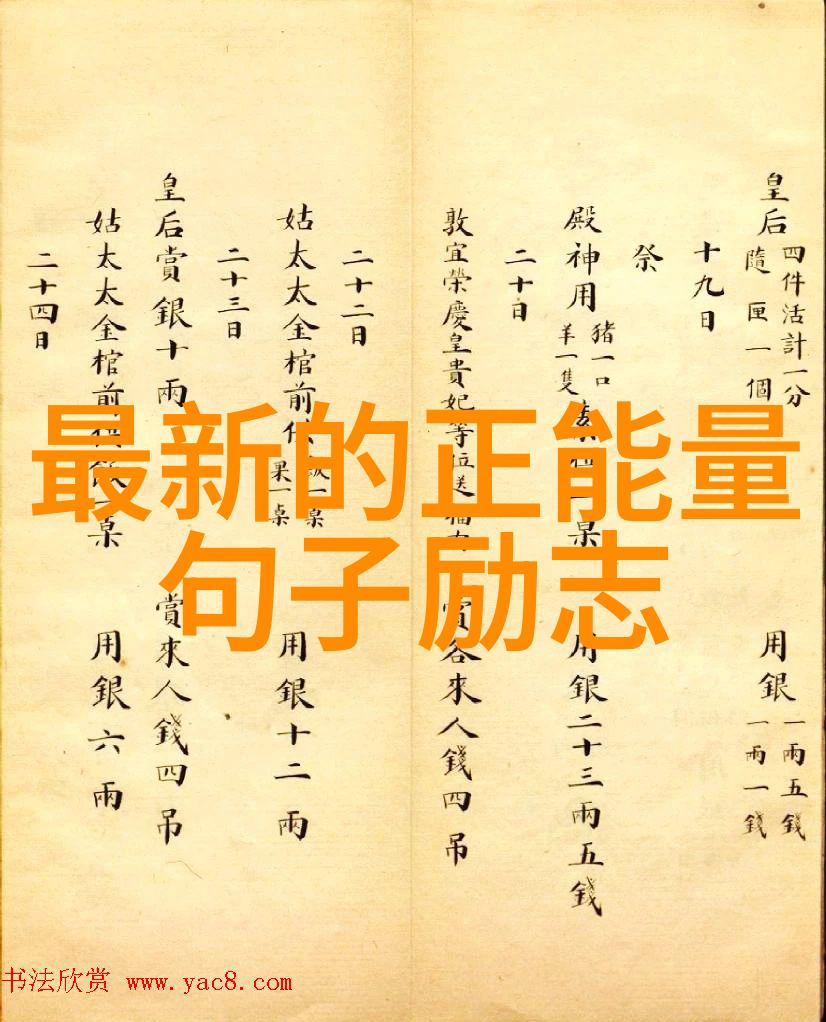 皇后 四件活計一分 隨匣一個 用銀 一兩五錢 一兩一錢
十九日
祭
殿神用 豬一口 羊一隻 一桌 用銀二十三兩五錢
二十日
敦宜榮慶皇貴妃等位送 賞各來人錢四吊
二十二日
姑太太金棺前供 飯一桌 果一桌 用銀十二兩
二十三日
皇后賞銀十兩 賞來人錢四吊
姑太太金棺前供飯一桌 用銀六兩
二十四日
最新的正能量
句子励志
书法欣赏 www.yac8.com